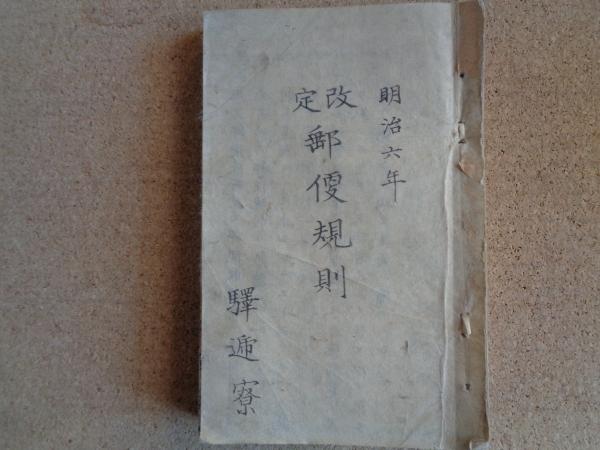 明治六年
改定郵便規則
驛逓寮